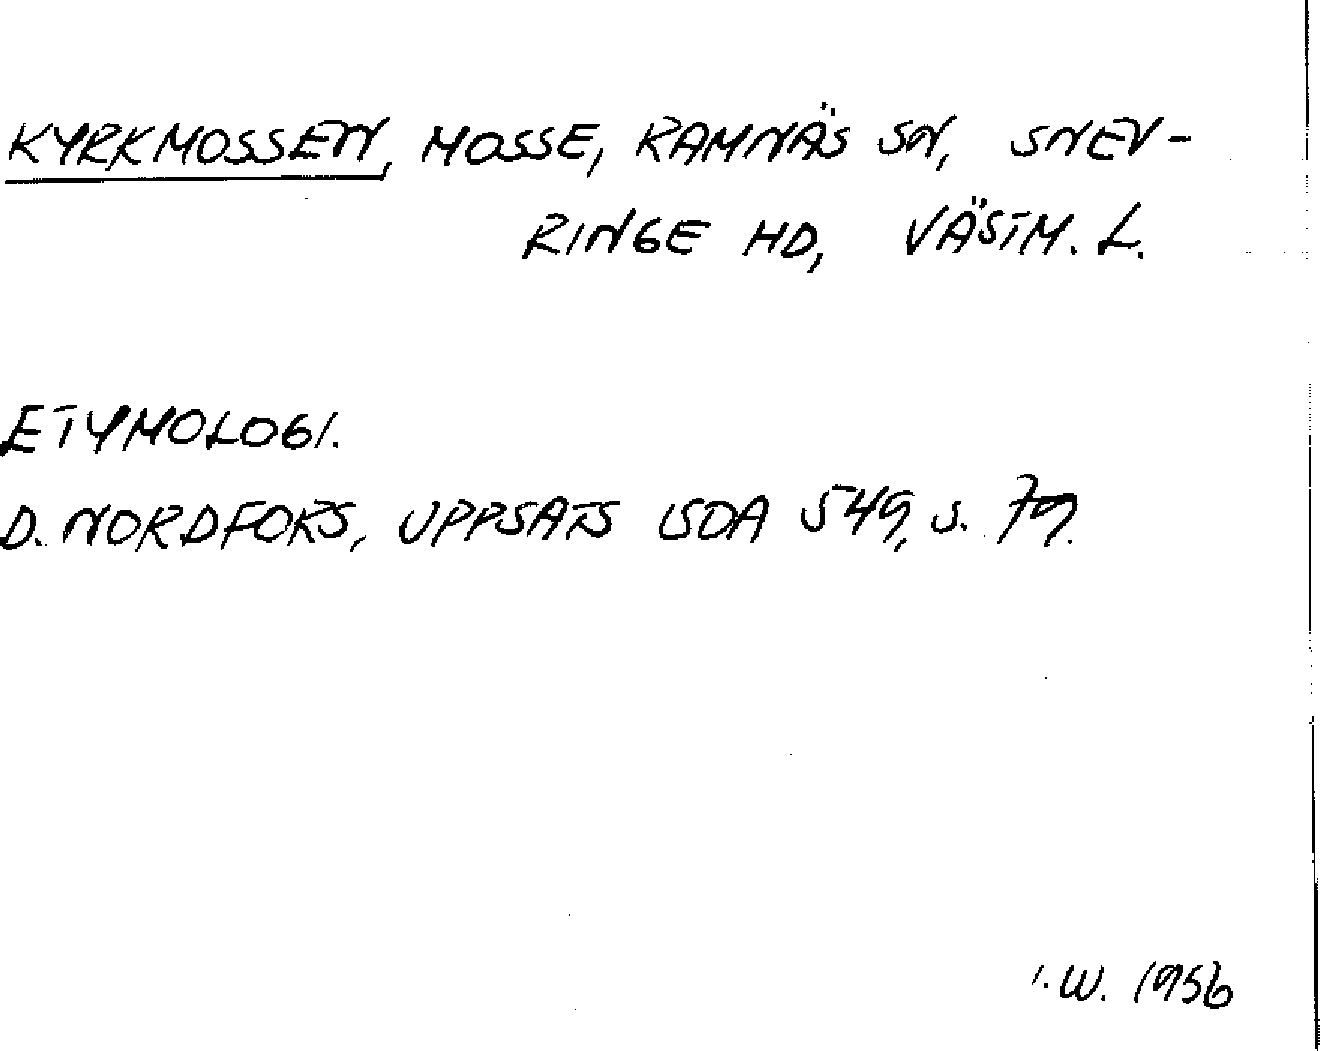 KYRKMOSSEN, MOSSE, RAMNÄS SN, SNEV-
RINGE HD, VÄSTM. L.
ETYMOLOGI.
D. NORDFORS, UPPSATS SOA 549, s. 79.
I.W. 1956